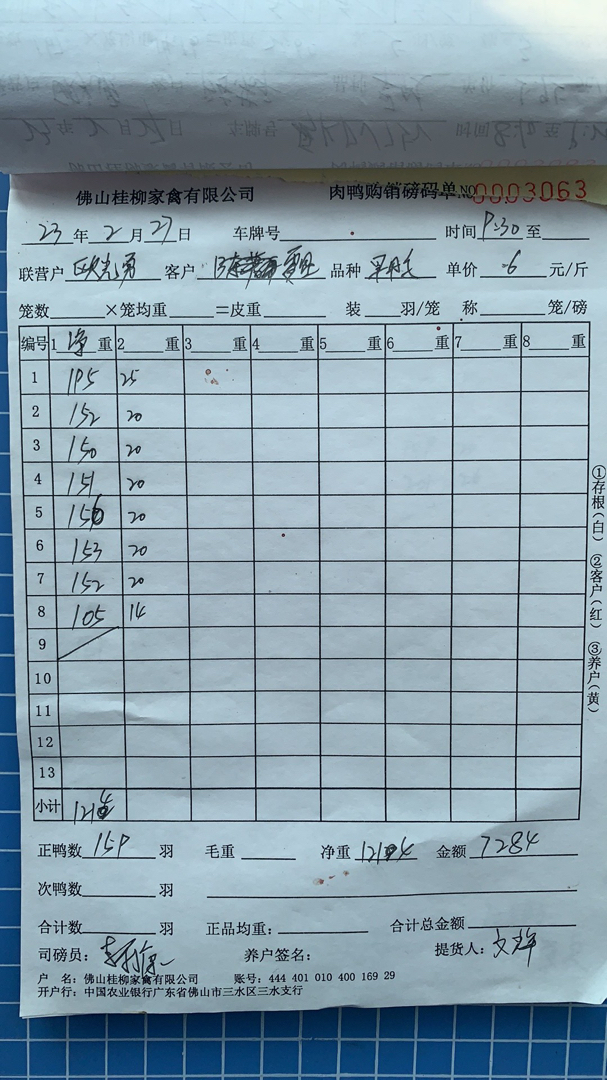 佛山桂柳家禽有限公司 肉鸭购销磅码单 NO 0003063
23 年 2 月 27 日 车牌号 时间 9:30 至
联营户 客户 品种 单价 6 元/斤
笼数 ×笼均重 =皮重 装 羽/笼 称 笼/磅
编号 1 净 重 2 重 3 重 4 重 5 重 6 重 7 重 8 重
1 195 25
2 152 20
3 150 20
4 151 20
5 156 20
6 153 20
7 152 20
8 105 14
9
10
11
12
13
小计 1214
正鸭数 159 羽 毛重 净重 1214 金额 7284
次鸭数 羽
合计数 羽 正品均重: 合计总金额
司磅员: 养户签名: 提货人:
户 名: 佛山桂柳家禽有限公司 账号: 444 401 010 400 169 29
开户行: 中国农业银行广东省佛山市三水区三水支行
①存根(白) ②客户(红) ③养户(黄)